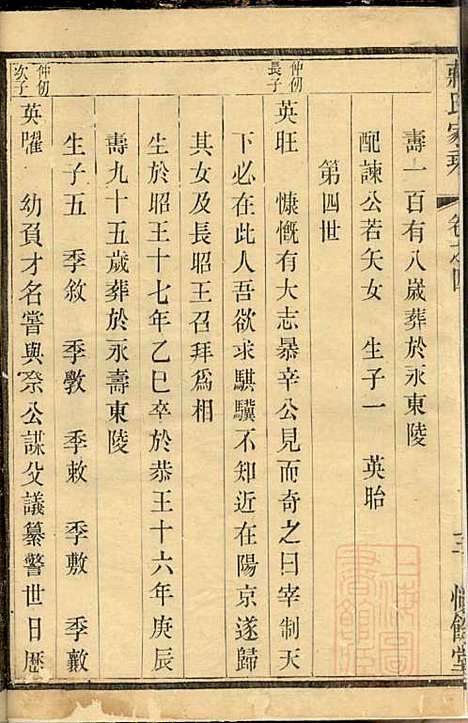 氏家乘 卷之四 三
壽一百有八歲葬於永東陵
配諫公若矢女 生子一 英眙
第四世
仲仞長子
英旺 慷慨有大志暴辛公見而奇之曰宰制天
下必在此人吾欲求騏驥不知近在陽京遂歸
其女及長昭王召拜爲相
生於昭王十七年乙巳卒於恭王十六年庚辰
壽九十五歲葬於永壽東陵
生子五 季敘 季斆 季敕 季敷 季
仲仞次子
英曜 幼負才名嘗與祭公謀父議纂警世日曆